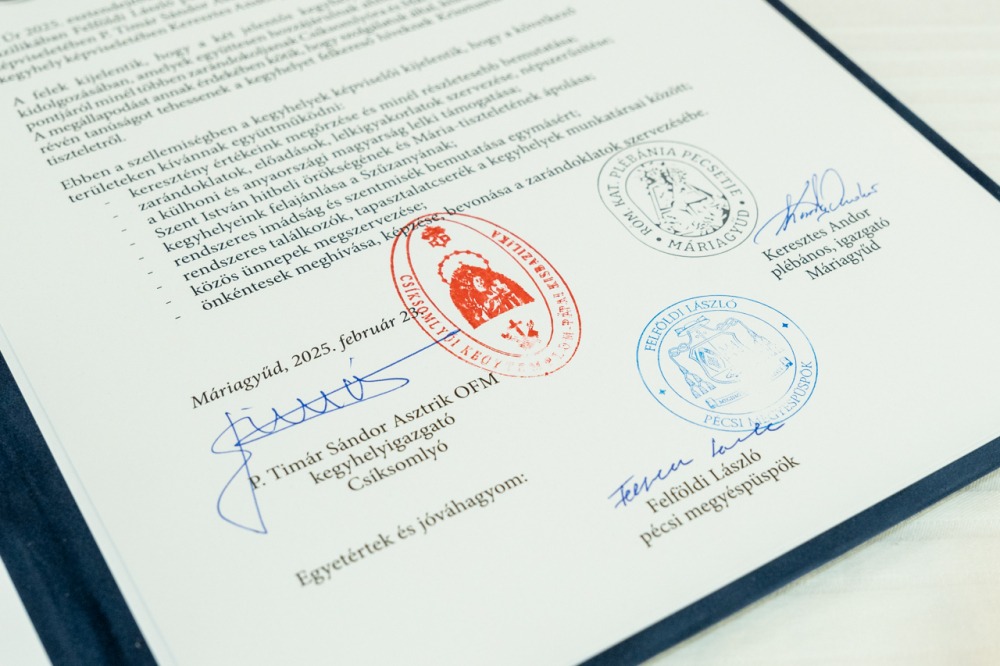 Úr 2025. esztendejé
Bazilikában Felföldi László p
képviseletében P. Timár Sándor A
kegyhely képviseletében Keresztes An
A felek kijelentik, hogy a két jelentős kegyh
kidolgozásában, amelyek együttesen hozzájárulnak ahhoz
pontjáról minél többen zarándokoljanak Csíksomlyóra és M
A megállapodást annak érdekében kötik, hogy szolgálatuk által
révén tanúságot tehessenek a kegyhelyet felkereső hívek
tiszteletről.
Ebben a szellemiségben a kegyhelyek képviselői kijelentik, hogy a következő
területeken kívánnak együttműködni:
- keresztény értékeink megőrzése és minél részletesebb bemutatása;
- zarándoklatok, előadások, lelkigyakorlatok szervezése, népszerűsítése;
- a külhoni és anyaországi magyarság lelki támogatása;
- Szent István hitbeli örökségének és Mária-tiszteletének ápolása;
- kegyhelyeink felajánlása a Szűzanyának;
- rendszeres imádság és szentmisék bemutatása egymásért;
- rendszeres találkozók, tapasztalatcserék a kegyhelyek munkatársai között;
- közös ünnepek megszervezése;
- önkéntesek meghívása, képzése, bevonása a zarándoklatok szervezésébe.
Máriagyűd, 2025. február 23.
CSÍKSOMLYÓI KEGYTEMPLOM-PÁPAI KISBAZILIKA
ROM. KAT. PLÉBÁNIA PECSÉTJE
• MÁRIAGYŰD •
Keresztes Andor
plébános, igazgató
Máriagyűd
P. Timár Sándor Asztrik OFM
kegyhelyigazgató
Csíksomlyó
FELFÖLDI LÁSZLÓ
PÉCSI MEGYÉSPÜSPÖK
Felföldi László
pécsi megyéspüspök
Egyetértek és jóváhagyom: